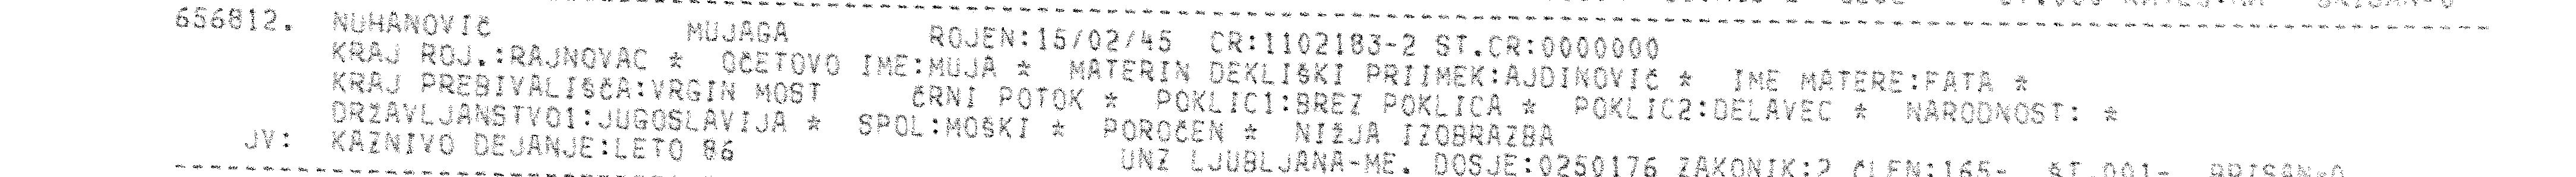 656812. NUHANOVIČ MUJAGA ROJEN:15/02/45 CR:1102183-2 ST.CR:0000000
KRAJ ROJ.:RAJNOVAC * OČETOVO IME:MUJA * MATERIN DEKLIŠKI PRIIMEK:AJDINOVIČ * IME MATERE:FATA *
KRAJ PREBIVALIŠČA:VRGIN MOST ČRNI POTOK * POKLIC1:BREZ POKLICA * POKLIC2:DELAVEC * NARODNOST: *
DRŽAVLJANSTVO1:JUGOSLAVIJA * SPOL:MOŠKI * POROČEN * NIŽJA IZOBRAZBA
JV: KAZNIVO DEJANJE:LETO 86 UNZ LJUBLJANA-ME. DOSJE:0250176 ZAKONIK:2 ČLEN:165- ŠT.001- BRISAN-0